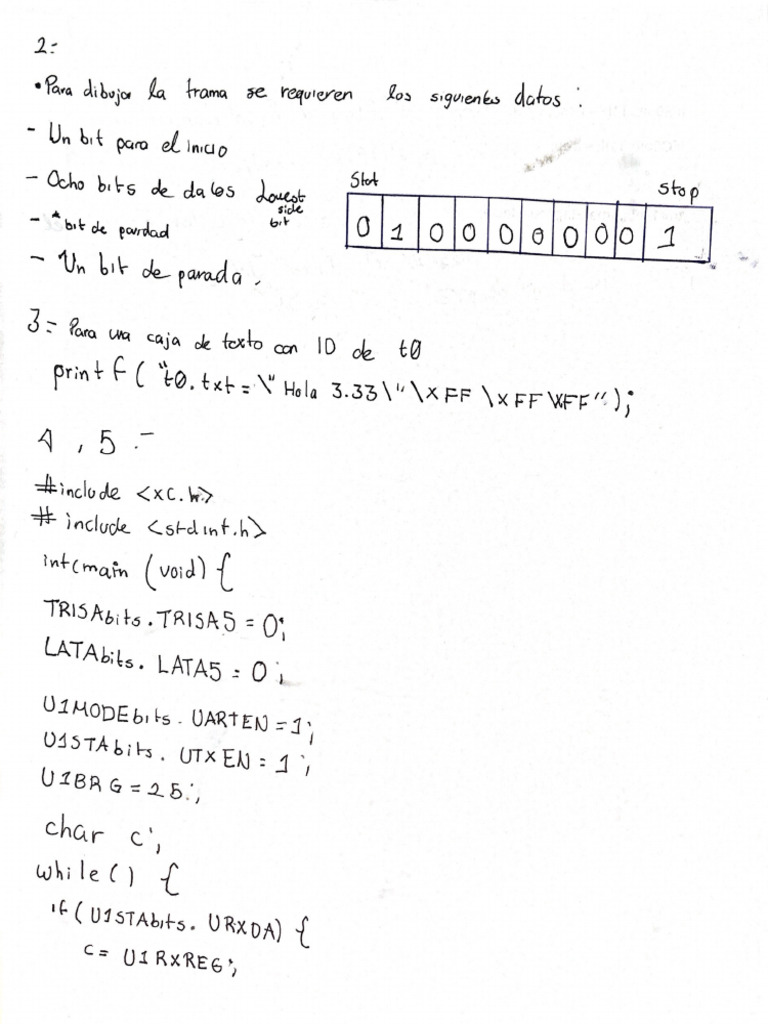 2:-
• Para dibujar la trama se requieren los siguientes datos :
- Un bit para el inicio
- Ocho bits de datos Lowest side bit
- * bit de paridad
- Un bit de parada.
Start Stop
0 1 0 0 0 0 0 0 0 1
3= Para una caja de texto con ID de t0
printf("t0.txt=\"Hola 3.33\"\xFF\xFF\xFF");
4 , 5 .-
#include <xc.h>
#include <stdint.h>
int main (void) {
TRISAbits.TRISA5 = 0;
LATAbits.LATA5 = 0;
U1MODEbits.UARTEN = 1;
U1STAbits.UTXEN = 1;
U1BRG = 25;
char c;
while() {
if(U1STAbits.URXDA) {
c = U1RXREG;